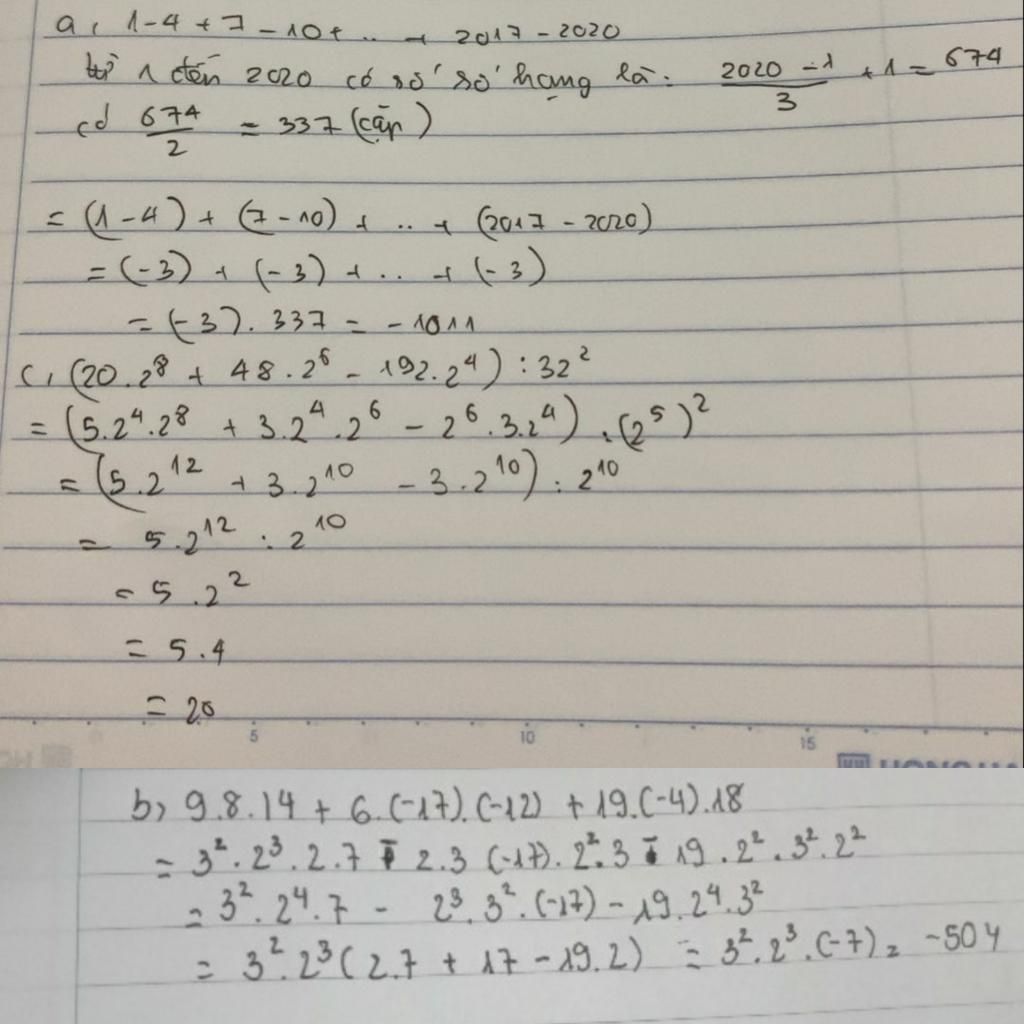 a, 1 - 4 + 7 - 10 + .. + 2017 - 2020
từ 1 đến 2020 có số số hạng là: \frac{2020 - 1}{3} + 1 = 674
có \frac{674}{2} = 337 (cặp)
= (1 - 4) + (7 - 10) + .. + (2017 - 2020)
= (-3) + (-3) + .. + (-3)
= (-3). 337 = - 1011
c, (20.2⁸ + 48.2⁶ - 192.2⁴) : 32²
= (5.2⁴.2⁸ + 3.2⁴.2⁶ - 2⁶.3.2⁴) : (2⁵)²
= (5.2¹² + 3.2¹⁰ - 3.2¹⁰) : 2¹⁰
= 5.2¹² : 2¹⁰
= 5.2²
= 5.4
= 20
5 10 15
b, 9.8.14 + 6.(-17).(-12) + 19.(-4).18
= 3².2³.2.7 - 2.3 (-17).2².3 - 19.2².3².2²
= 3².2⁴.7 - 2³.3².(-17) - 19.2⁴.3²
= 3².2³ (2.7 + 17 - 19.2) = 3².2³.(-7) = -504